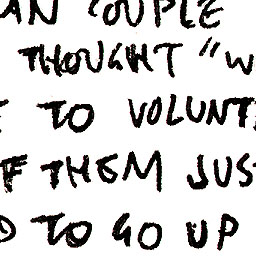 AN COUPLE
THOUGHT "W
E TO VOLUNT
F THEM JUS
D TO GO UP